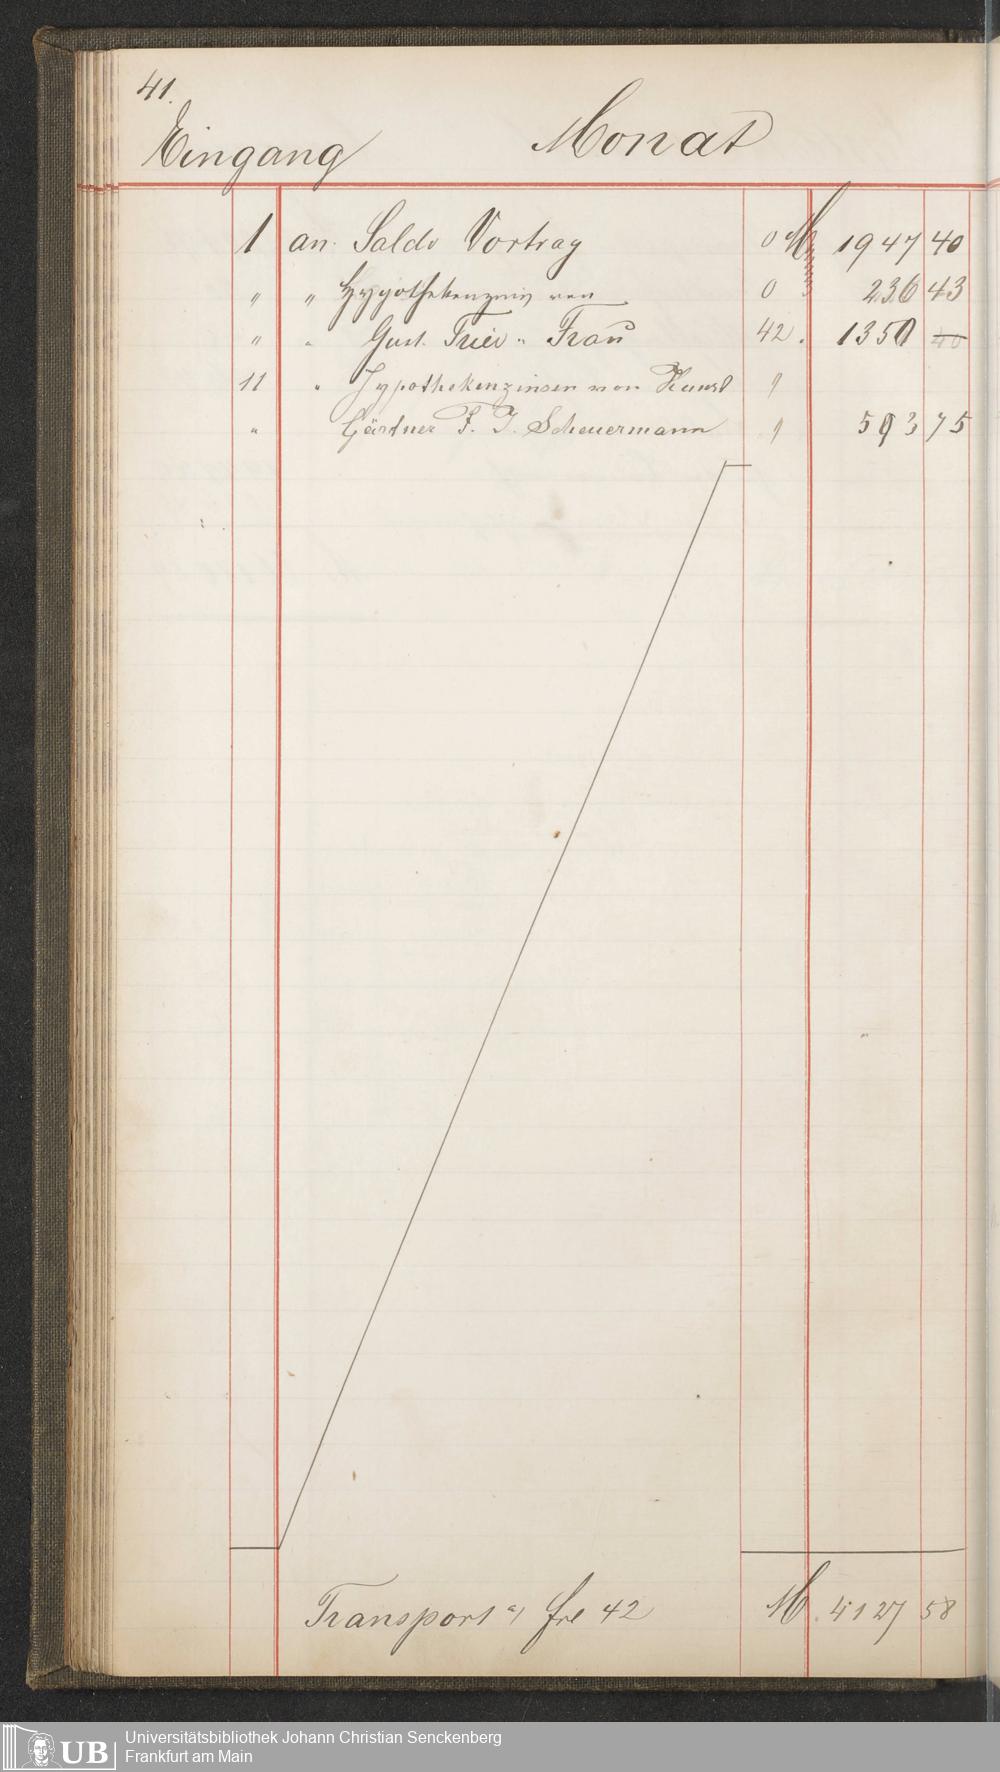 41.
Eingang Monat
1 an Saldo Vortrag 0 M 1947 40
" " Hypothekenzins von 0 236 43
" " Gust. Trier " Frau 42. 1350
11 " Hypothekenzinsen von "
" Gärtner F. J. Scheuermann " 593 75
Transport a/ fol 42 M. 4127 58
Universitätsbibliothek Johann Christian Senckenberg
Frankfurt am Main
UB